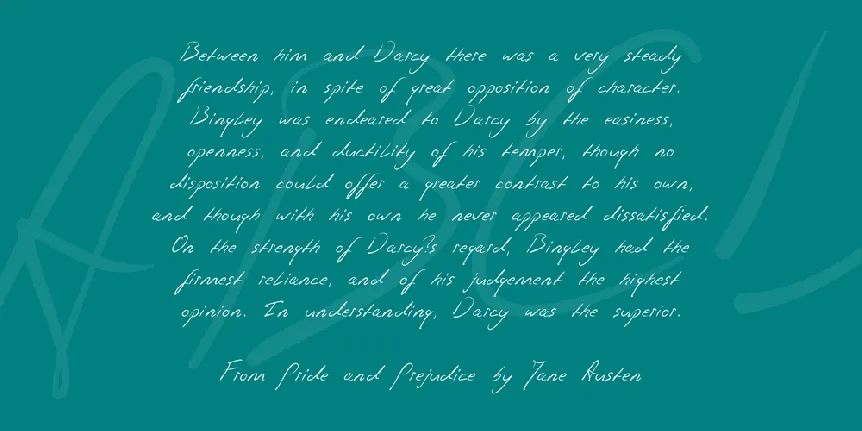 ABC!
Between him and Darcy there was a very steady
friendship, in spite of great opposition of character.
Bingley was endeared to Darcy by the easiness,
openness, and ductility of his temper, though no
disposition could offer a greater contrast to his own,
and though with his own he never appeared dissatisfied.
On the strength of Darcy?s regard, Bingley had the
firmest reliance, and of his judgement the highest
opinion. In understanding, Darcy was the superior.
From Pride and Prejudice by Jane Austen